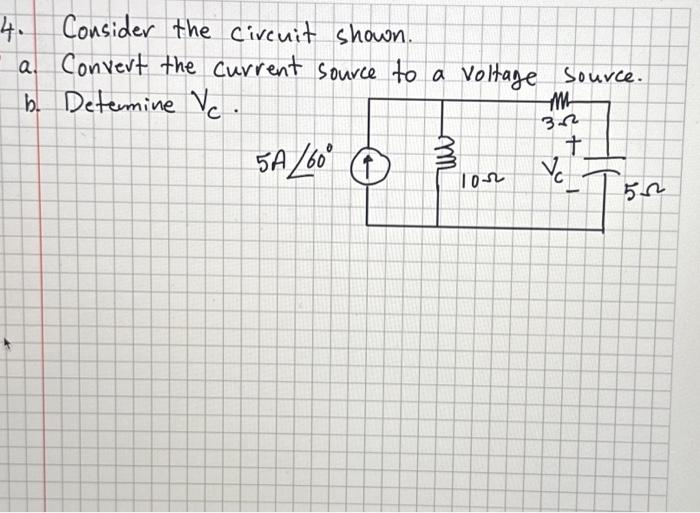 4. Consider the circuit shown.
a. Convert the current source to a voltage source.
b. Determine Vc.
3Ω
+
5A∠60°
10Ω
Vc
-
5Ω